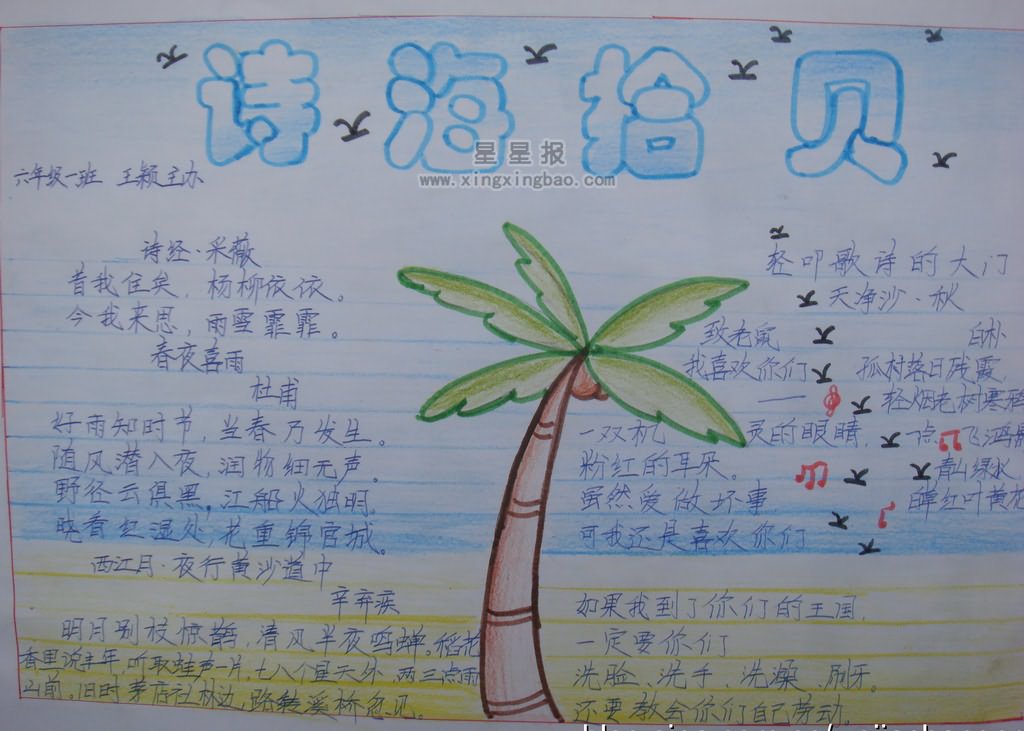 诗海拾贝
星星报
www.xingxingbao.com
六年级一班 王颖主办
诗经·采薇
昔我往矣，杨柳依依。
今我来思，雨雪霏霏。
春夜喜雨
杜甫
好雨知时节，当春乃发生。
随风潜入夜，润物细无声。
野径云俱黑，江船火独明。
晓看红湿处，花重锦官城。
西江月·夜行黄沙道中
辛弃疾
明月别枝惊鹊，清风半夜鸣蝉。稻花
香里说丰年，听取蛙声一片，七八个星天外，两三点雨
山前，旧时茅店社林边，路转溪桥忽见。
轻叩歌诗的大门
天净沙·秋
白朴
孤村落日残霞
轻烟老树寒鸦
一点飞鸿
青山绿水
红叶黄花
致老鼠
我喜欢你们
——
一双机灵的眼睛，
粉红的耳朵。
虽然爱做坏事，
可我还是喜欢你们
如果我到了你们的王国，
一定要你们
洗脸、洗手、洗澡、刷牙。
还要教会你们自己劳动。